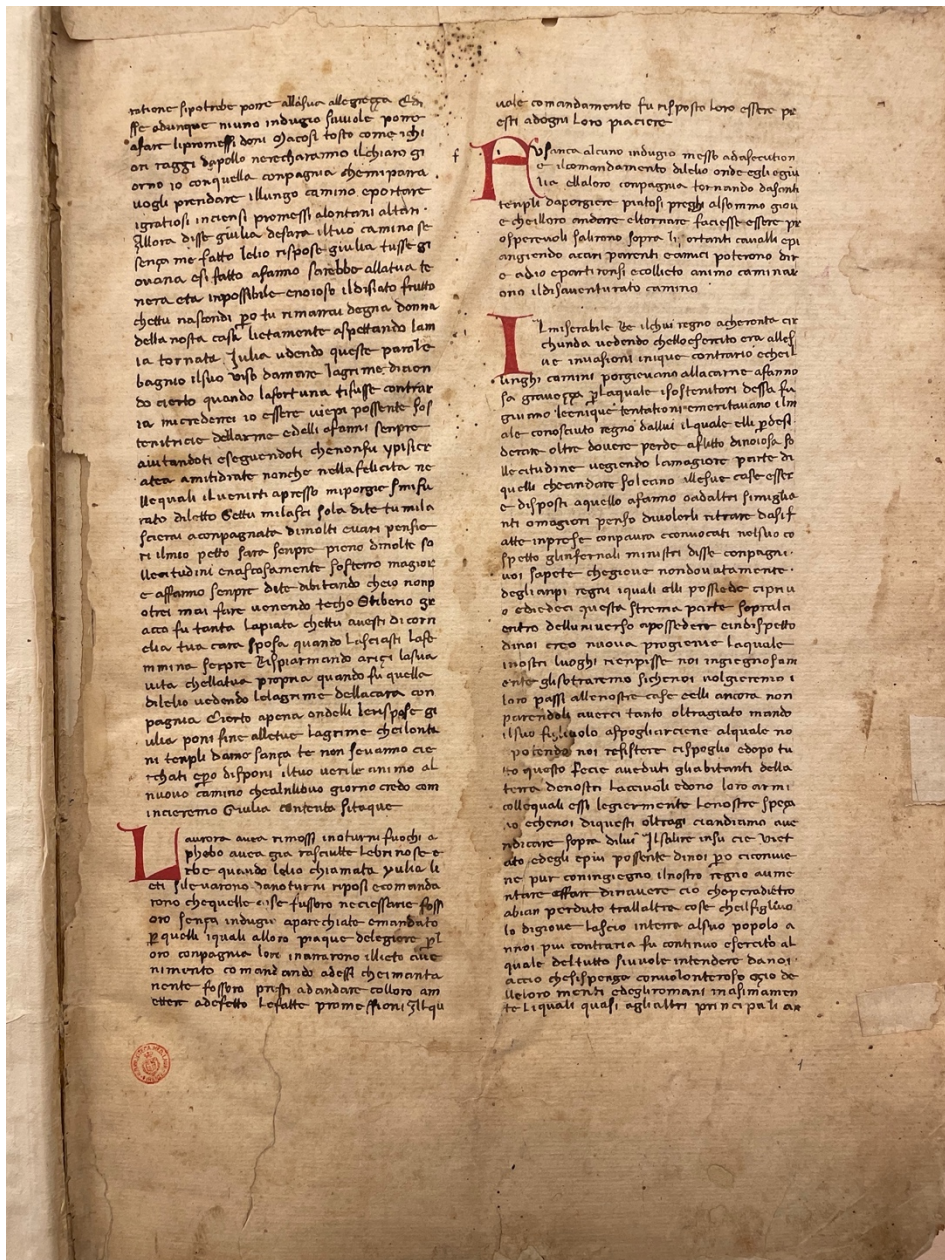 ratione sipotrebe porre allasua allegrezza Edi
sse adunque niuno indugio sivuole porre
afare lipromessi doni Macosi tosto come ichi
ari raggi dapollo nerecharanno ilchiaro gi
orno io conquella compagnia chemiparra
vogli prendare illungo camino eportare
igratiosi inciensi promessi alontani altari.
Allora disse giulia desara iltuo camino se
sença me fatto lelio rispose giulia tusse gi
ovana esi fatto afanno sarebbe allatua te
nera eta inpossibile enoioso ildisiato frutto
chettu nascondi po tu rimarrai degna donna
della nosta casa lietamente aspettando lam
ia tornata. Julia udendo queste parole
bagnio ilsuo viso damare lagrime dicien
do cierto quando lafortuna tifusse contrar
ia micrederei io essere viepi possente sos
tenitricie dellarme edelli afanni senpre
aiutandoti eseguendoti chenonfu ypisicr
atea amitidrate nonche nella felicita ne
llequali ilvenirti apresso miporgie smisu
rato diletto Settu milasci sola dite tu mila
scierai acompagnata dimolti evari pensie
ri ilmio petto sara senpre pieno dimolte so
llecitudini enascosamente sosterro magior
e affanno senpre dite dubitando cheio nonp
otrei mai fare venendo techo Otiberio gr
acco fu tanta lapiata chettu avesti dicorn
elia tua cara sposa quando lasciasti lafe
mmina serpe Rispiarmando anzi lasua
vita chellatua propria quando fu quella
dilelio vedendo lelagrime dellacara con
pagnia Cierto apena ondelli lerispose gi
ulia poni fine alletue lagrime cheilonta
ni templi damo sança te non sevanno cie
rchati epo disponi iltuo verile animo al
nuovo camino chealnuovo giorno credo com
incieremo Giulia contenta sitaque
Laurora avea rimossi inoturni fuochi e
phebo avea gia rasciutte lebrinose e
rbe quando lelio chiamata yulia li
eti silevarono danoturni riposi ecomanda
rono chequelle cose fussoro neciessarie foss
oro sença indugio aparechiate emandato
per quelli iquali alloro piaque delegiere pl
oro conpagnia loro inarrarono illieto ave
nimento comandando adessi cheimanta
nente fossoro presti adandare colloro am
ettere adefetto lefatte promessioni Alqu
uale comandamento fu risposto loro essere pr
esti adogni loro piaciere
Fu sanca alcuno indugio messo adasecution
e ilcomandamento dilelio onde egli ogiu
lia ellaloro conpagnia tornando dasanti
templi daporgiere piatosi preghi alsommo giou
e cheilloro andare eltornare faciesse essere pr
osperevoli salirono sopra li portanti cavalli epi
angiendo acari parenti eamici poterono dir
e adio epartironsi ecollieto animo caminar
ono ildisaventurato camino
Il miserabile Re ilchui regno acheronta cir
chunda vedendo chello esercito era allesu
ue invasioni inique contrario echei
lunghi camini porgievano allacarne afanno
sa gravezza plaquale isostenitori dessa fu
guimo leenique tentationi emeritavano ilm
ale conosciuto regno dallui ilquale elli pdesi
derare oltre dovere perde aflitto dinoiosa so
llecitudine vegiendo lamagiore parte di
quelli checandare soleano illesue case esser
e disposti aquello afanno oadaltri simiglia
nti omagiori penso divolerli ritrare dasif
atte inprese conpaura econvocati nelsuo co
spetto glinfernali ministri disse conpagni.
voi sapete chegiove nondovutamente.
degli anpi regni iquali elli possiede cipriu
o ediedeci questa strema parte soprala ci
entro delluniverso apossedere eindispetto
dinoi creo nuova progienie laquale
inostri luoghi rienpisse noi ingiegnosam
ente glisotraremo sichenoi volgieremo i
loro passi allenostre case eelli ancora non
parendoli averci tanto oltragiato mando
ilsuo figliuolo aspogliarciene alquale no
potendo noi resistere cispoglio edopo tu
tto questo fecie aveduti gliabitanti della
terra denostri lacciuoli edono loro armi
collequali essi legiermente lenostre speza
no echenoi diquesti oltragi ciandiamo ave
ndicare sopra dilui Ilsalire insu cie viet
ato edegli epiu possente dinoi po ciconvie
ne pur coningiegno ilnostro regno aume
ntare affare dinavere cio cheperadietro
abian perduto trallaltre cose cheilfigliuo
lo digiove lascio interra alsuo popolo a
nnoi piu contraria fu continuo esercito al
quale deltutto sivuole intendere danoi.
accio chesispenga convolonteroso ozio de
lleloro menti edegliromani masimamen
te liquali quasi aglialtri principali an